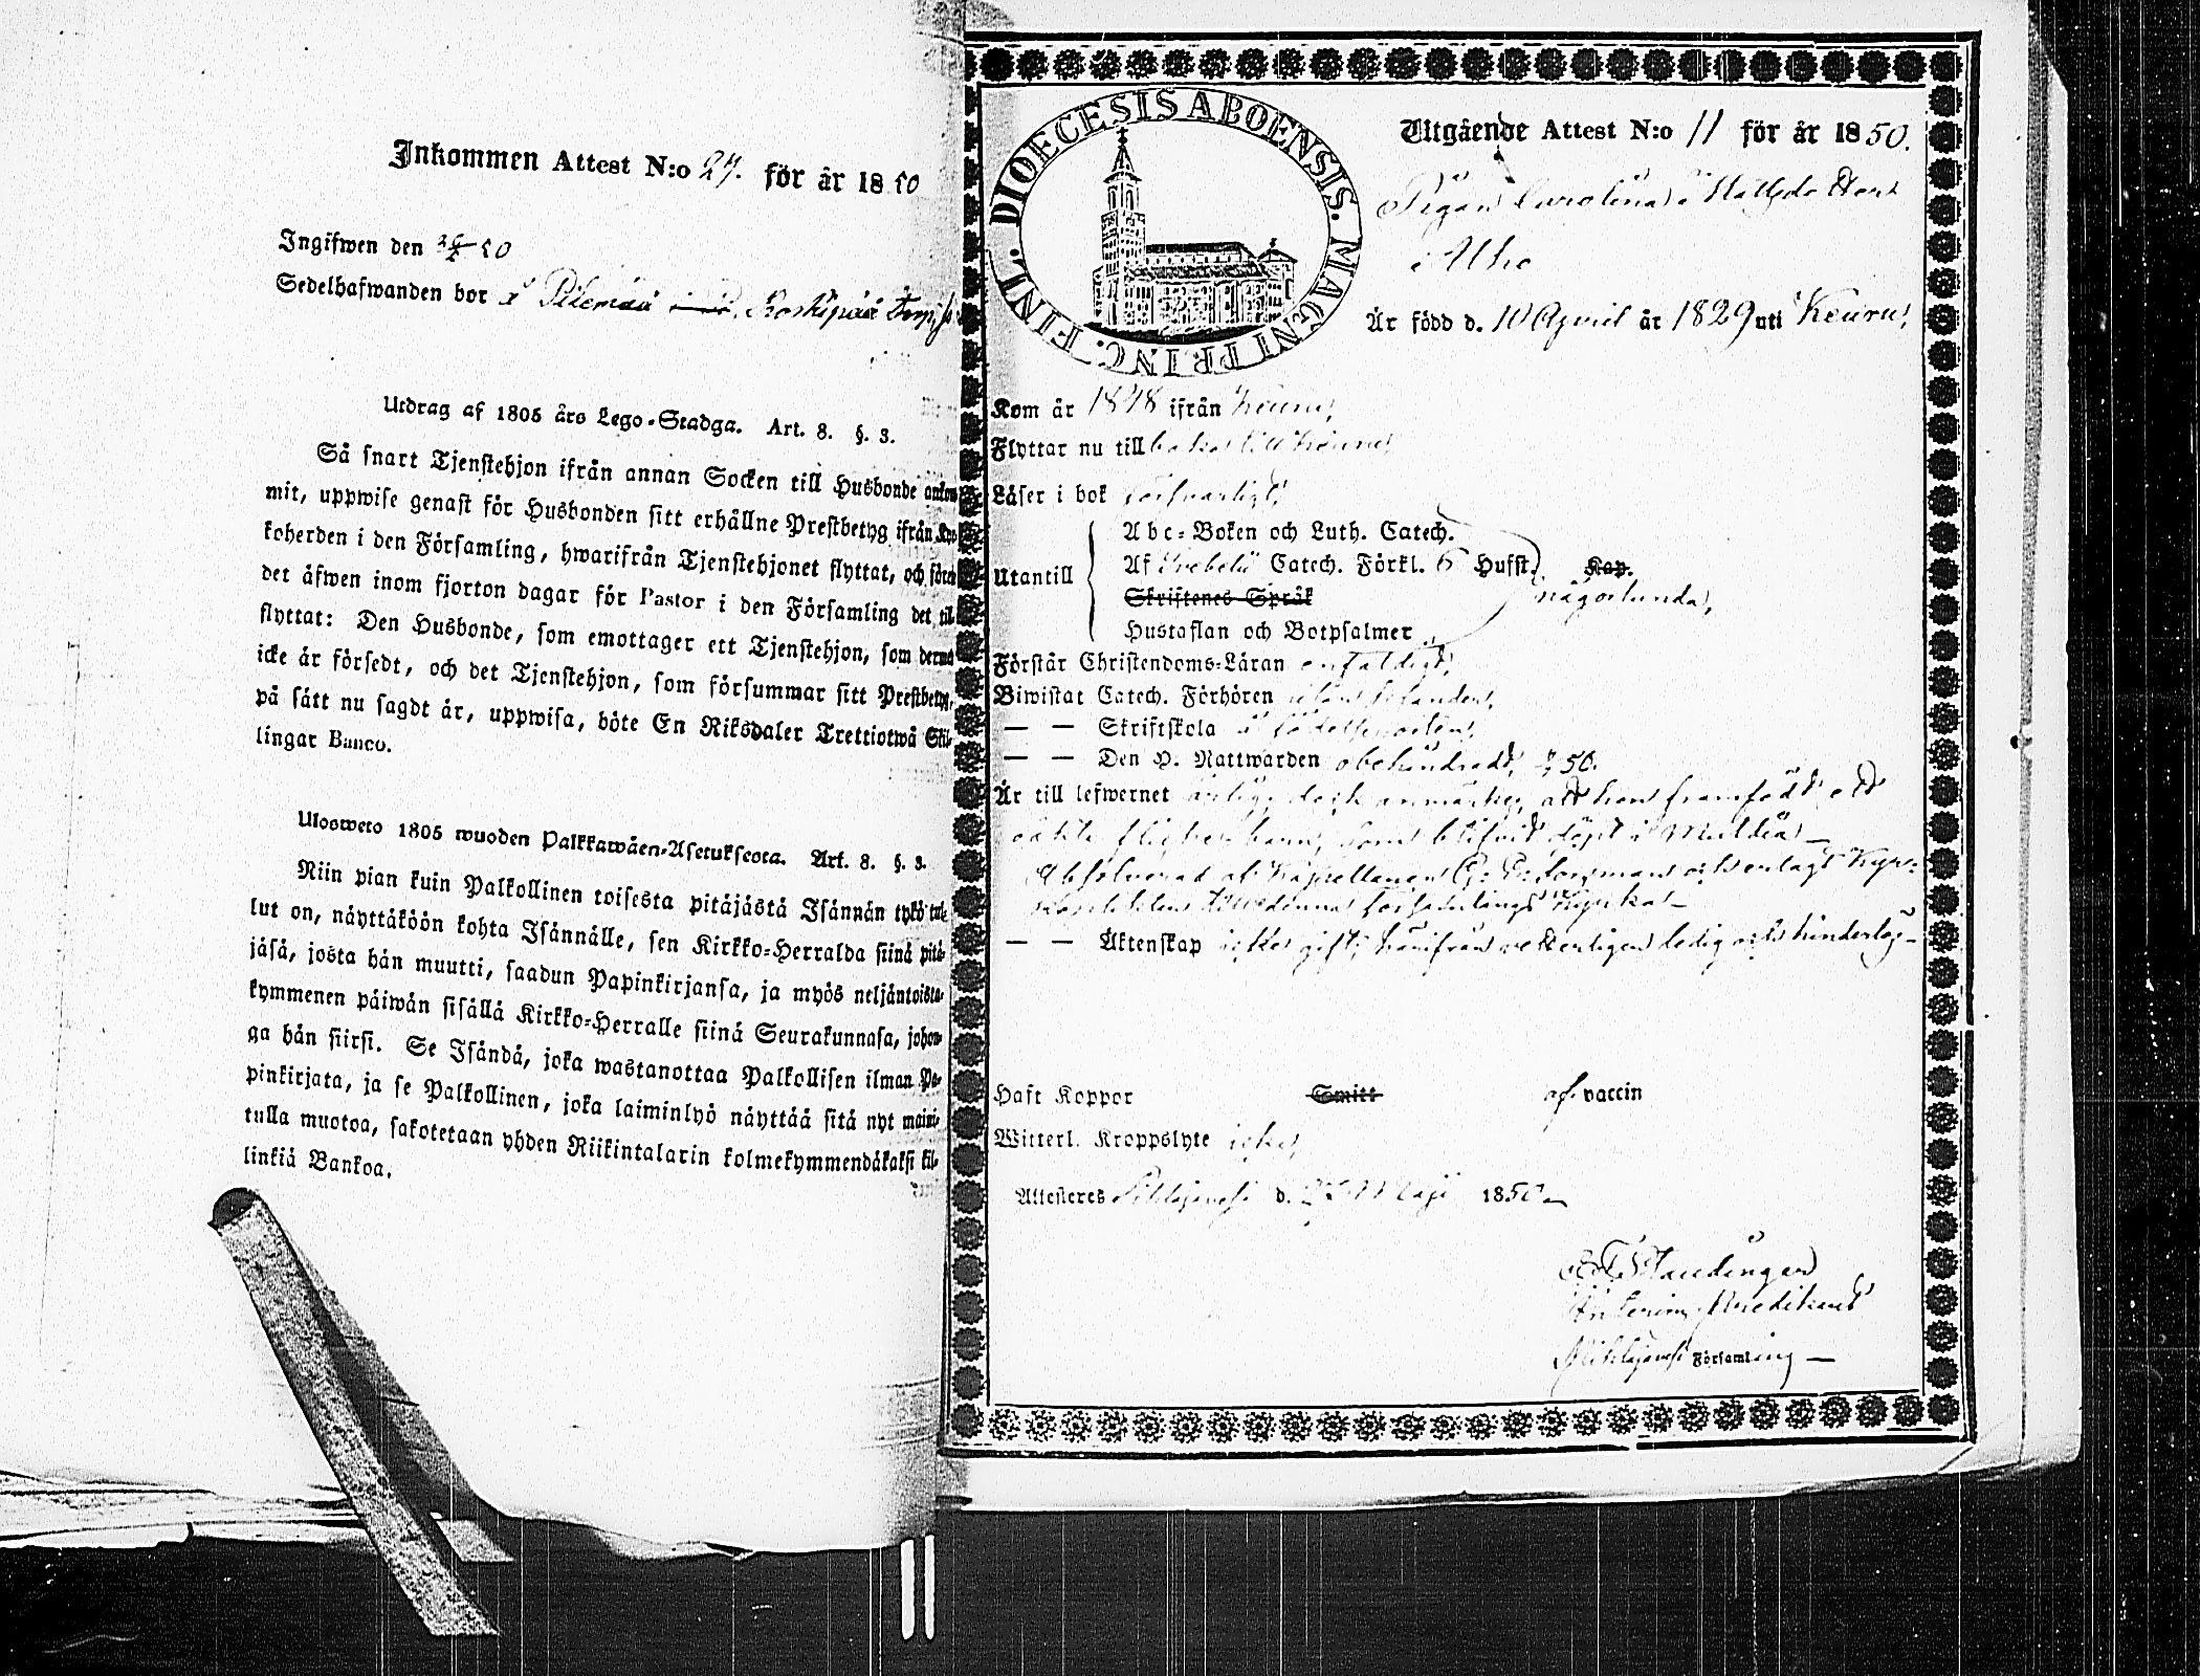 Inkommen Attest N:o 27. för år 1850
Ingifwen den 50
Sedelhafwanden bor
Utdrag af 1805 års Lego-Stadga. Art. 8. §. 3.
Så snart Tjenstehjon ifrån annan Socken till Husbonde
mit, uppwise genast för Husbonden sitt erhållne Prestbetyg ifrån
koherden i den Församling, hwarifrån Tjenstehjonet flyttat, och
det äfwen inom fjorton dagar för Pastor i den Församling det til
flyttat: Den Husbonde, som emottager ett Tjenstehjon, som dermed
icke är försedt, och det Tjenstehjon, som försummar sitt Prestbetyg,
på sätt nu sagdt är, uppwisa, böte En Riksdaler Trettiotwå Skil-
lingar Banco.
Ulosweto 1805 wuoden Palkkawäen-Asetuksesta. Art. 8. §. 3.
Niin pian kuin Palkollinen toisesta pitäjästä Isännän tykö tul-
lut on, näyttäköön kohta Isännälle, sen Kirkko-Herralda siinä pitä-
jäsä, josta hän muutti, saadun Papinkirjansa, ja myös neljäntoista-
kymmenen päiwän sisällä Kirkko-Herralle siinä Seurakunnasa, johon-
ga hän siirsi. Se Isändä, joka wastanottaa Palkollisen ilman Pa-
pinkirjata, ja se Palkollinen, joka laiminlyö näyttää sitä nyt maini-
tulla muotoa, sakotetaan yhden Riikintalarin kolmekymmendäkaksi kil-
linkiä Bankoa.
DIOECESIS ABOENSIS. MAGNI PRINC. FINL.
Utgående Attest N:o 11 för år 1850.
Pigan Carolina Mattsdotter
i Aho
Är född d. 10 April år 1829 uti Keuru,
Kom år 1848 ifrån Keuru,
Flyttar nu till baka till Keuru,
Läser i bok försvarligt,
Utantill
Abc-Boken och Luth. Catech.
Af Svebelii Catech. Förkl. 6 Hufst. Kap.
Skriftenes Språk någorlunda,
Hustaflan och Botpsalmer
Förstår Christendoms-Läran enfaldigt,
Biwistat Catech. Förhören
— — Skriftskola å
— — Den H. Nattwarden obehindradt, 50.
Är till lefwernet ärlig, dock anmärkes, att hon framfödt ett
oäkta flickebarn, som blifvit döpt i Multia —
Absolverad af Kapellanen och erlagt Kyr-
församlings Kyrka —
— — Äktenskap icke gift; härifrån vetterligen ledig och hinderlös —
Haft Koppor Smitt af vaccin
Witterl. Kroppslyte icke,
Attesteres Pihlajavesi d. Maji 1850 —
Pihlajavesi Församling —